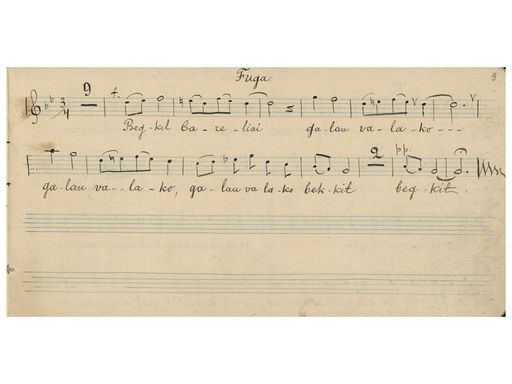 Fuga.
9
9
f.
Beg-kit ba-re-liai ga-lau va-la-ko---
ga-lau va--la-ko, ga-lau va la-ko bekkit
2
pp.
begkit.